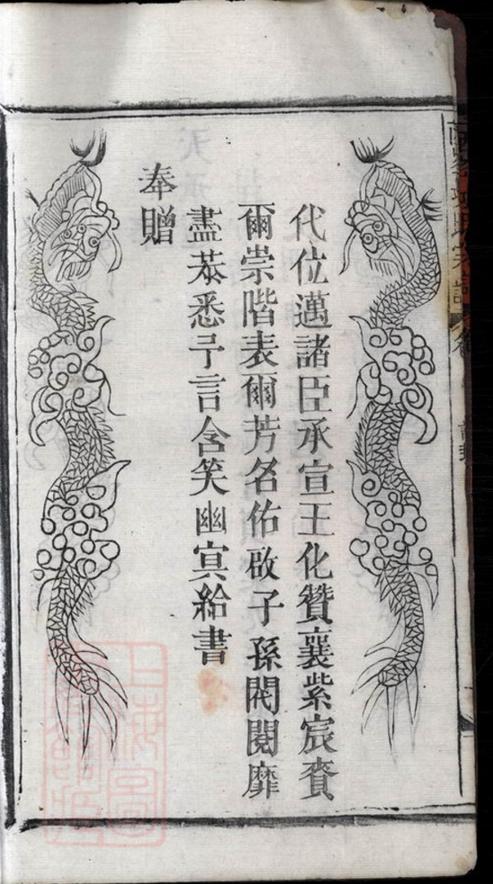 代位邁諸臣承宣王化贊襄紫宸賚
爾崇階表爾芳名佑啟子孫閥閱靡
盡恭悉予言含笑幽冥給書
奉贈